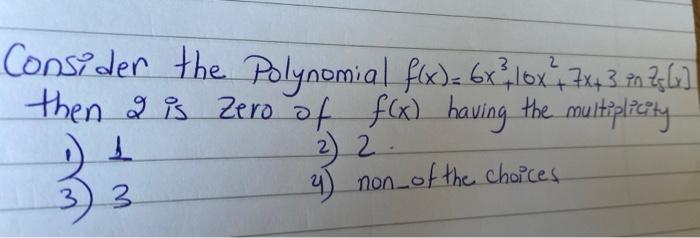 Consider the Polynomial f(x)= 6x³+16x²+7x+3 in Z₅[x]
then 2 is Zero of f(x) having the multiplicity
1) 1 2) 2.
3) 3 4) non-of the choices